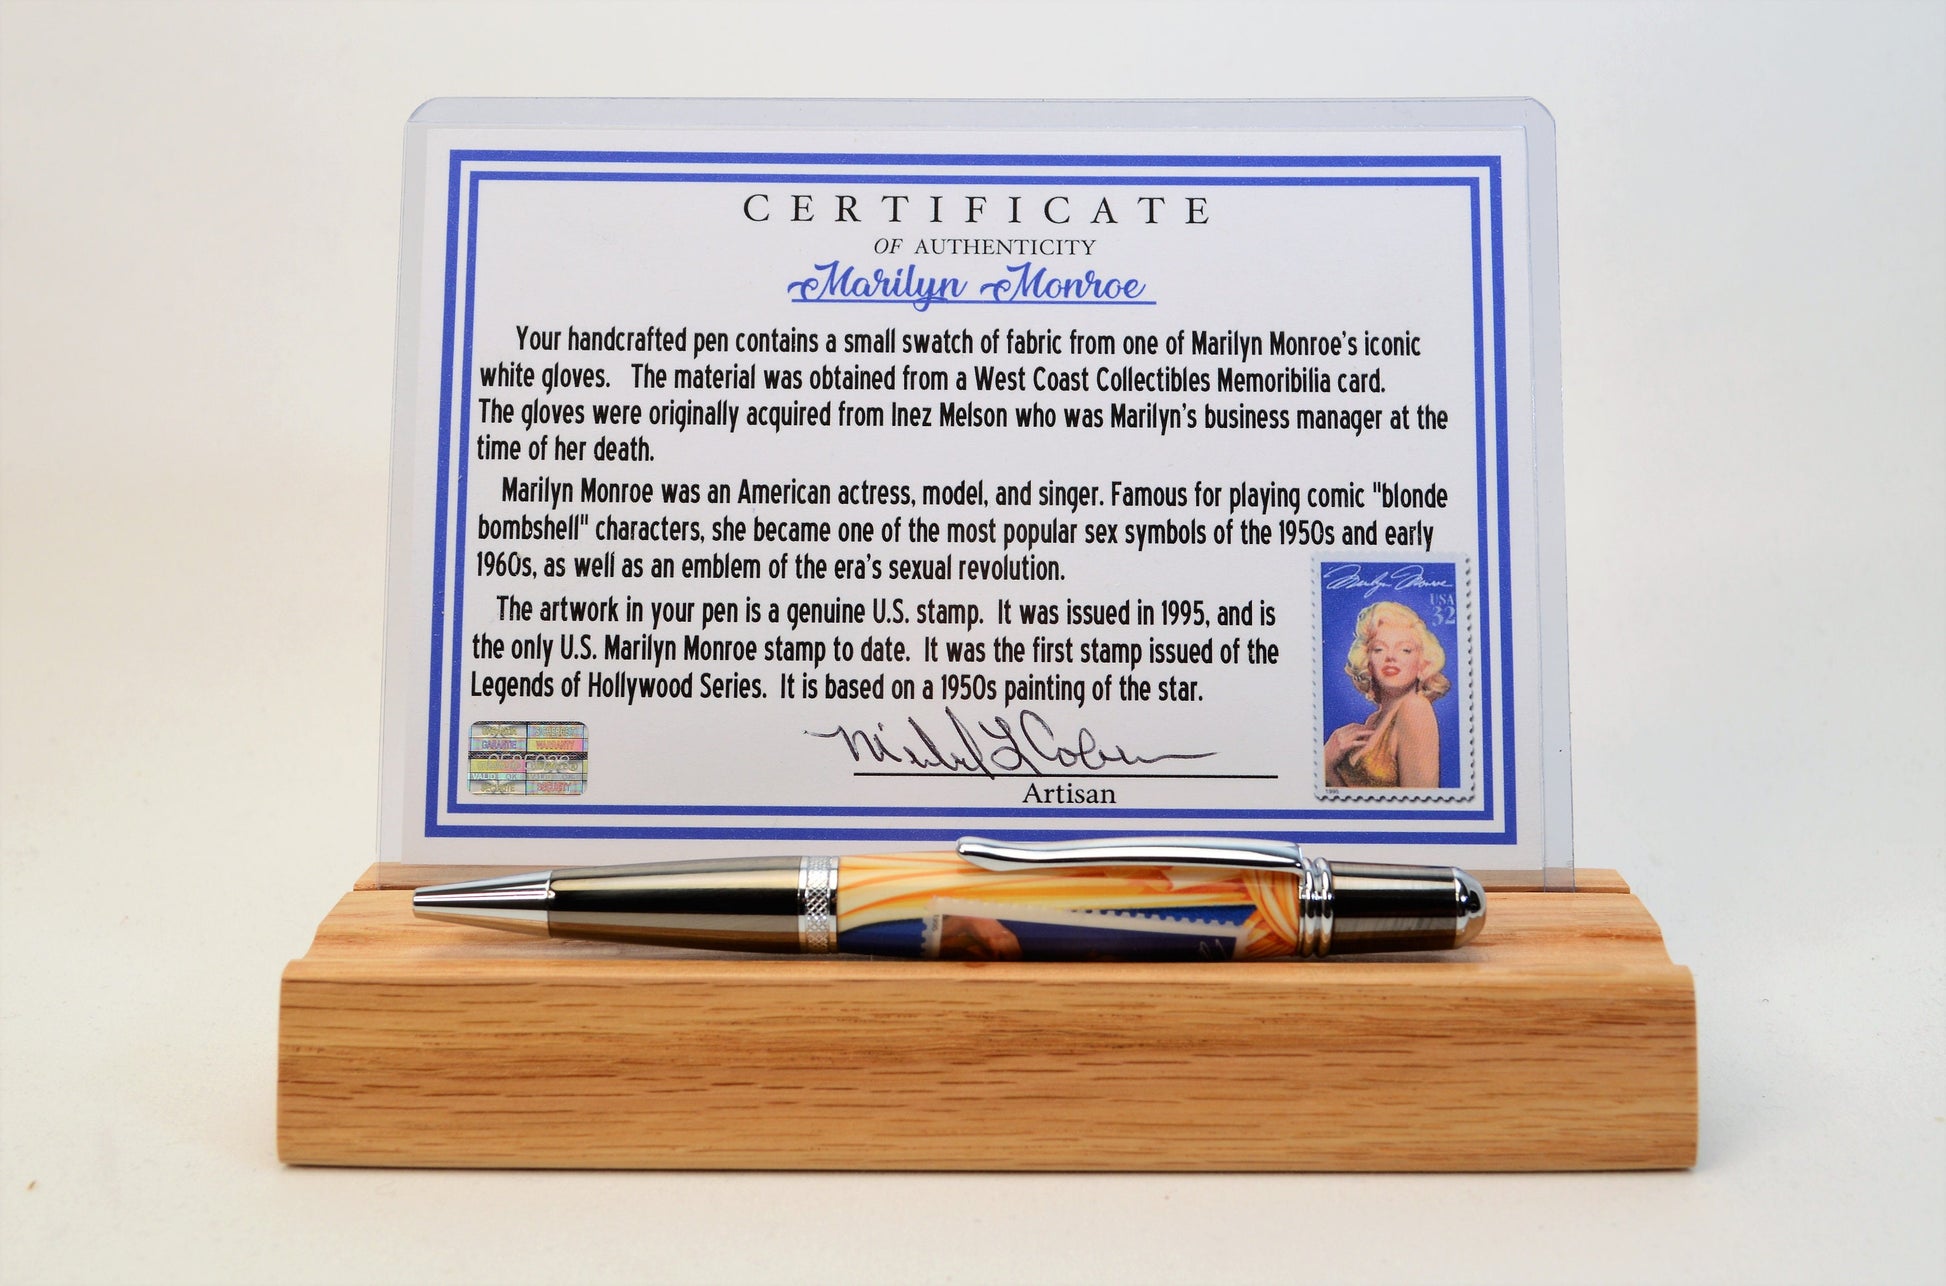 CERTIFICATE
OF AUTHENTICITY
Marilyn Monroe
Your handcrafted pen contains a small swatch of fabric from one of Marilyn Monroe's iconic
white gloves. The material was obtained from a West Coast Collectibles Memoribilia card.
The gloves were originally acquired from Inez Melson who was Marilyn's business manager at the
time of her death.
Marilyn Monroe was an American actress, model, and singer. Famous for playing comic "blonde
bombshell" characters, she became one of the most popular sex symbols of the 1950s and early
1960s, as well as an emblem of the era's sexual revolution.
The artwork in your pen is a genuine U.S. stamp. It was issued in 1995, and is
the only U.S. Marilyn Monroe stamp to date. It was the first stamp issued of the
Legends of Hollywood Series. It is based on a 1950s painting of the star.
Marilyn Monroe
USA
32
1995
GARANTIE WARRANTY
VALID OK
SECURITY
Artisan
1995